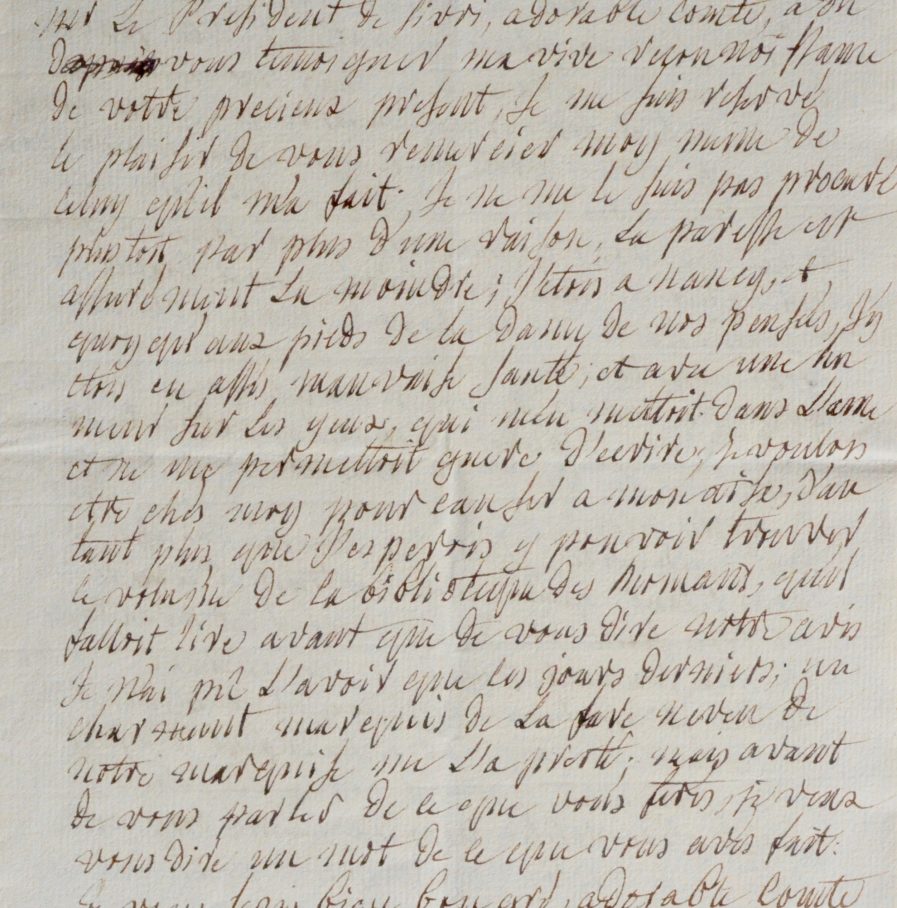 Le President de sivri, adorable Comte, a dû
vous temoigner ma vive reconnoissance
de votre precieux present, Je me suis reservé
le plaisir de vous remercier moy meme de
celuy qu'il m'a fait; Je ne me le suis pas procuré
plustost par plus d'une raison, La paresse est
assurement La moindre; J'etois a nancy, et
quoyqu'aux pieds de la dame de nos pensées, J'y
etois en asses mauvaise santé; et avec une hu
meur sur Les yeux, qui m'en mettoit dans L'ame
et ne me permettoit guere d'ecrire; Je voulois
etre chés moy pour causer a mon aise, d'au
tant plus que J'esperois y pouvoir trouver
le volume de la bibliotequé des Romans, qu'il
falloit lire avant que de vous dire notre avis
Je n'ai pû L'avoir que les jours derniers; un
charmant marquis de La fare neveu de
notre marquise me L'a presté; mais avant
de vous parler de ce que vous ferés, je veux
vous dire un mot de ce que vous avés fait:
bien adorable Comte